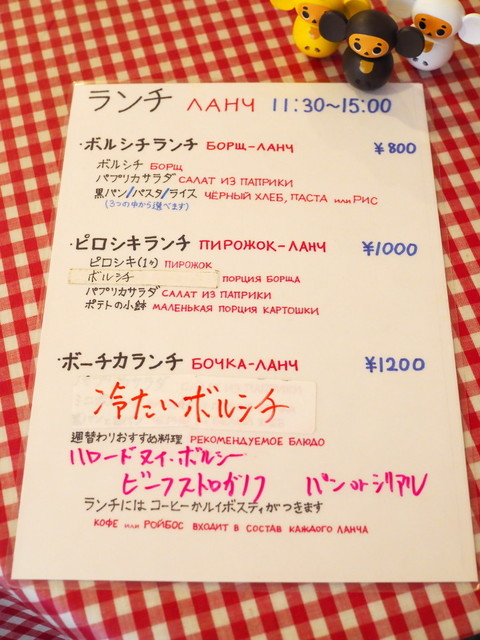 ランチ ЛАНЧ 11:30~15:00
・ボルシチランチ БОРЩ-ЛАНЧ ¥800
ボルシチ БОРЩ
パプリカサラダ САЛАТ ИЗ ПАПРИКИ
黒パン/パスタ/ライス ЧЁРНЫЙ ХЛЕБ, ПАСТА или РИС
(3つの中から選べます)
・ピロシキランチ ПИРОЖОК-ЛАНЧ ¥1000
ピロシキ(1ヶ) ПИРОЖОК
ボルシチ ПОРЦИЯ БОРЩА
パプリカサラダ САЛАТ ИЗ ПАПРИКИ
ポテトの小鉢 МАЛЕНЬКАЯ ПОРЦИЯ КАРТОШКИ
・ボーチカランチ БОЧКА-ЛАНЧ ¥1200
冷たいボルシチ
週替わりおすすめ料理 РЕКОМЕНДУЕМОЕ БЛЮДО
ハロードヌイ・ボルシー
ビーフストロガノフ パン or シリアル
ランチには コーヒーかルイボスティがつきます
КОФЕ или РОЙБОС ВХОДИТ В СОСТАВ КАЖДОГО ЛАНЧА